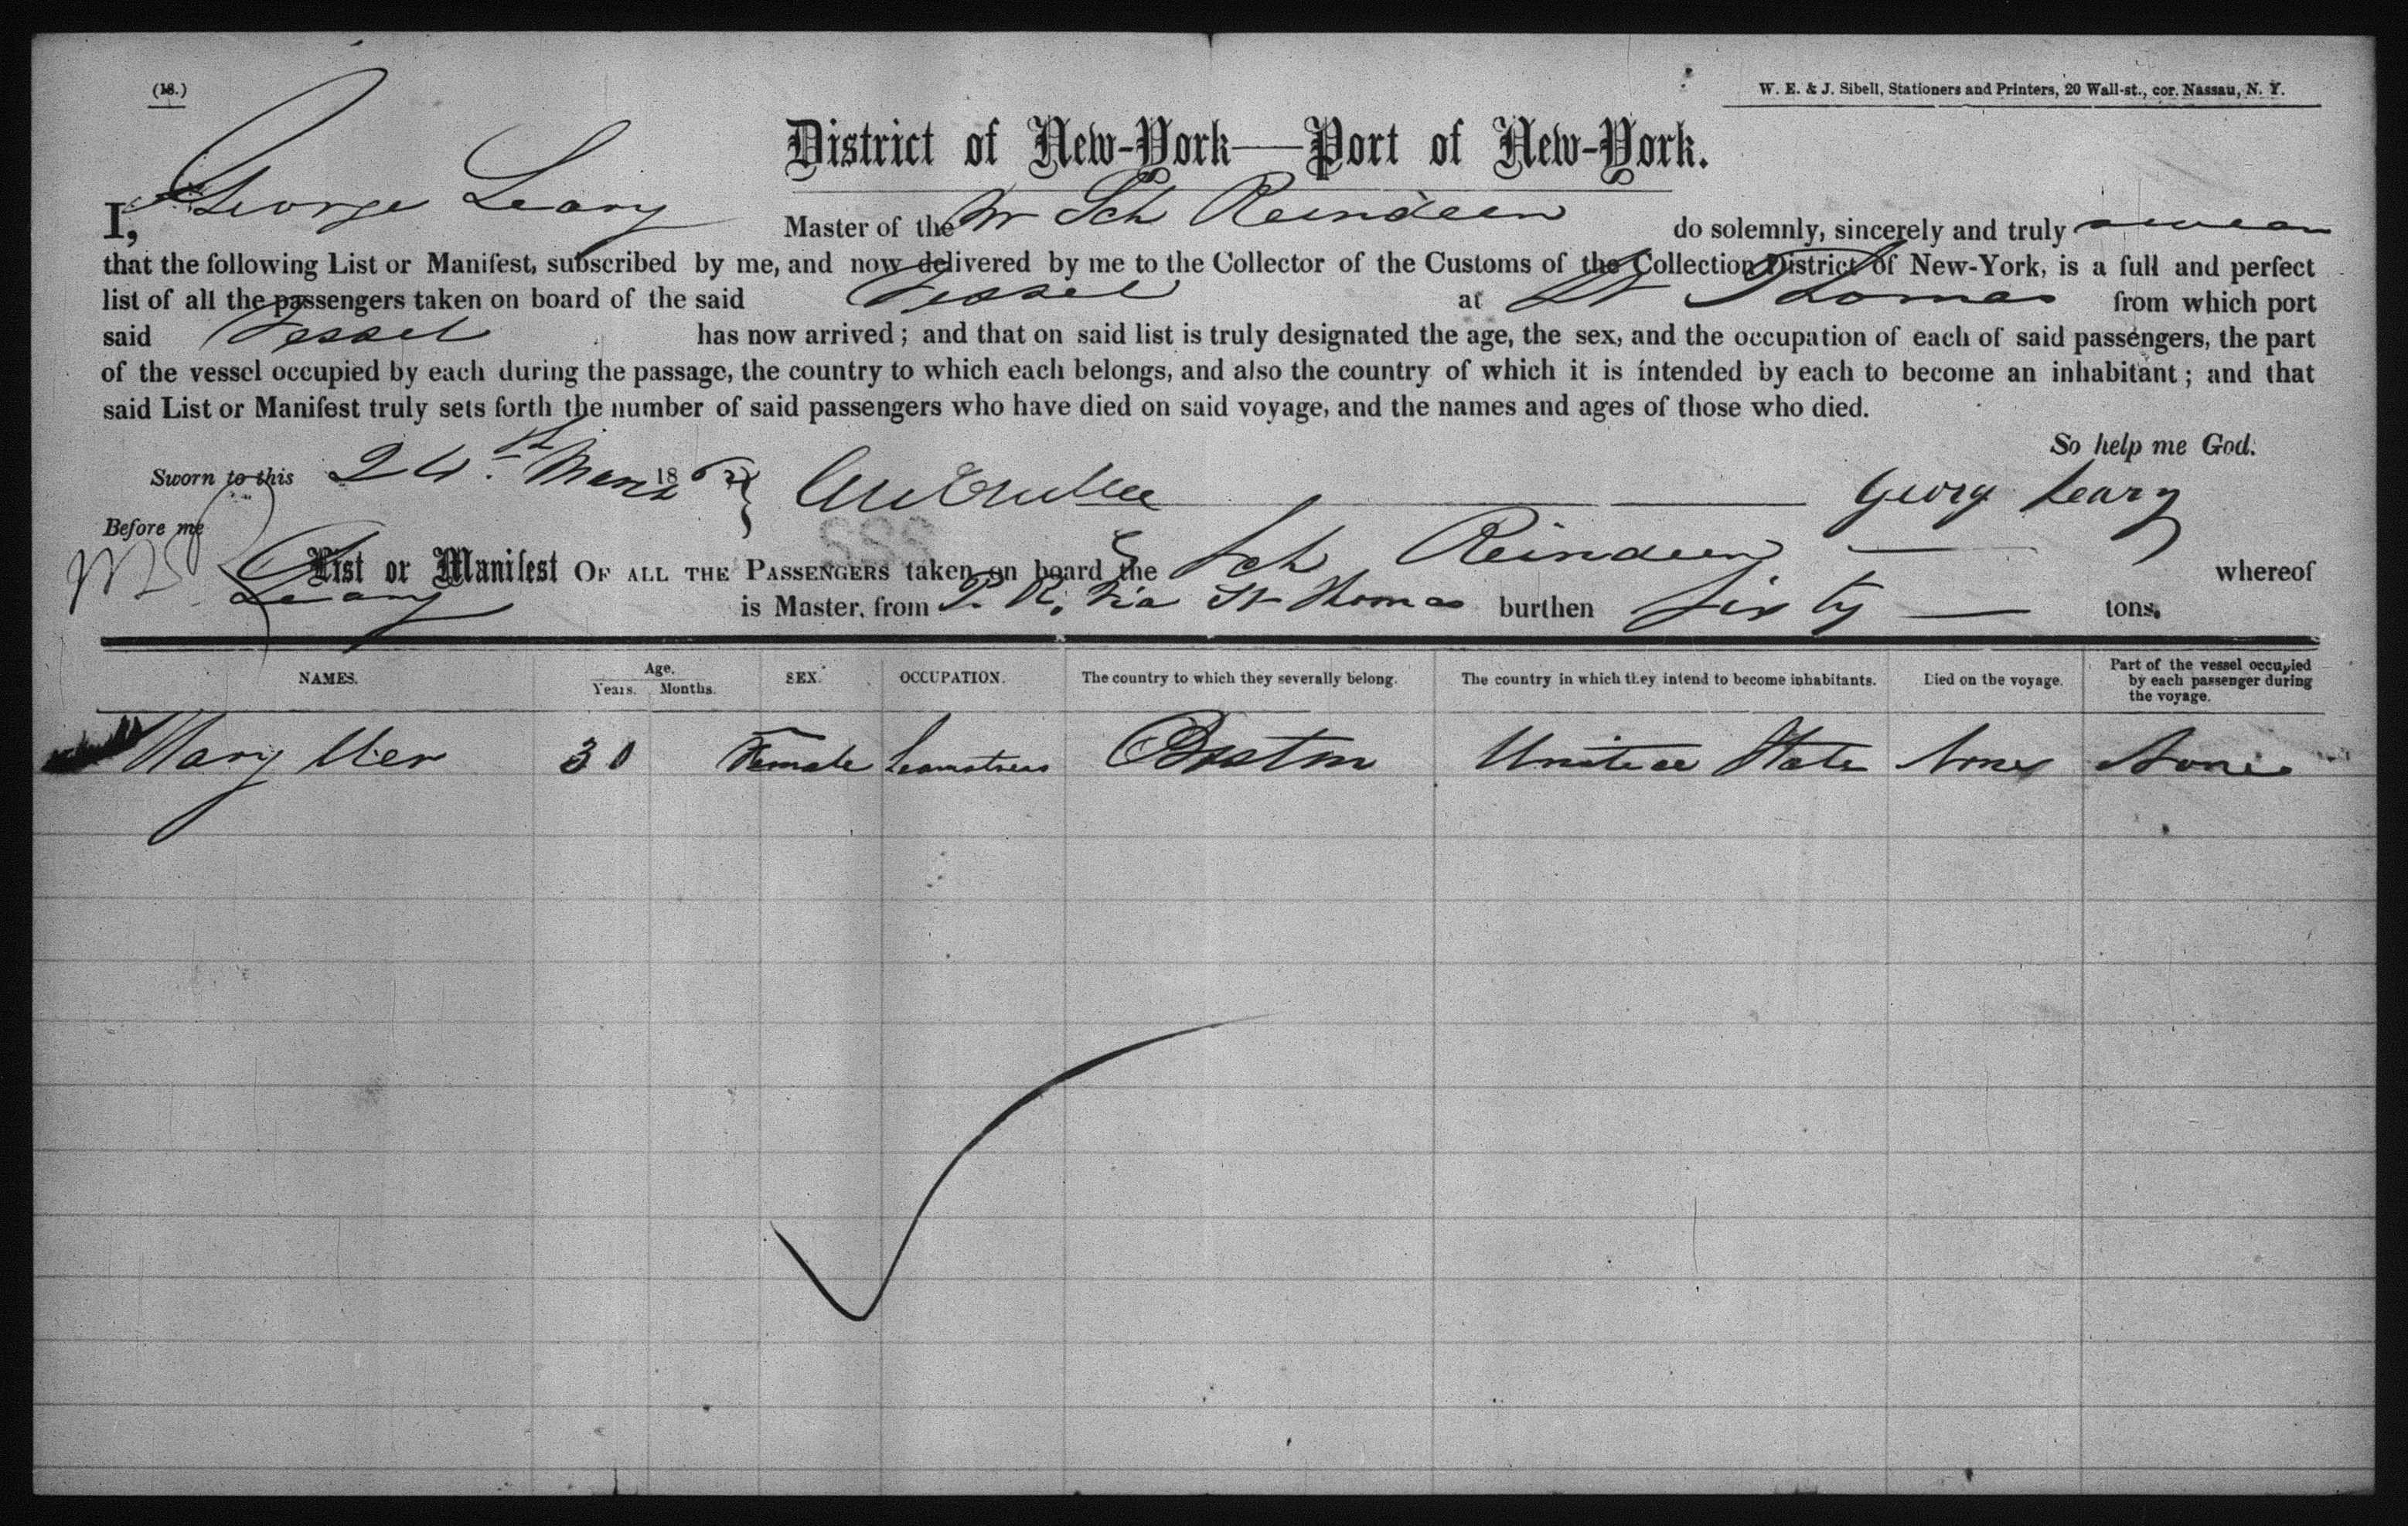 (18.)
W. E. & J. Sibell, Stationers and Printers, 20 Wall-st., cor. Nassau, N. Y.
District of New-York—Port of New-York.
I, George Leary Master of the Sch Reindeer do solemnly, sincerely and truly swear
that the following List or Manifest, subscribed by me, and now delivered by me to the Collector of the Customs of the Collection District of New-York, is a full and perfect
list of all the passengers taken on board of the said Vessel at St Thomas from which port
said Vessel has now arrived; and that on said list is truly designated the age, the sex, and the occupation of each of said passengers, the part
of the vessel occupied by each during the passage, the country to which each belongs, and also the country of which it is intended by each to become an inhabitant; and that
said List or Manifest truly sets forth the number of said passengers who have died on said voyage, and the names and ages of those who died.
So help me God.
Sworn to this 24th 186 Georg Leary
Before me
List or Manifest OF ALL THE PASSENGERS taken on board the Sch Reindeer whereof
G Leary is Master, from P. R. Via St Thomas burthen Sixty tons.
NAMES. Age. Years. Months. SEX. OCCUPATION. The country to which they severally belong. The country in which they intend to become inhabitants. Died on the voyage. Part of the vessel occupied by each passenger during the voyage.
Mary 30 Female Seamstress Boston United State None None